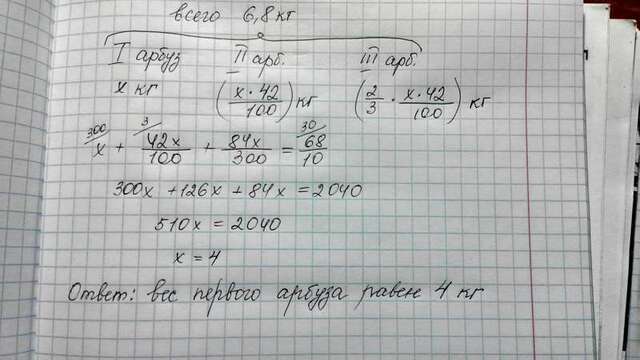 всего 6,8 кг
I арбуз II арб. III арб.
x кг (x·42/100) кг (2/3 · x·42/100) кг
300/ x + 3/ 42x/100 + 84x/300 = 30/ 68/10
300x + 126x + 84x = 2040
510x = 2040
x = 4
Ответ: вес первого арбуза равен 4 кг